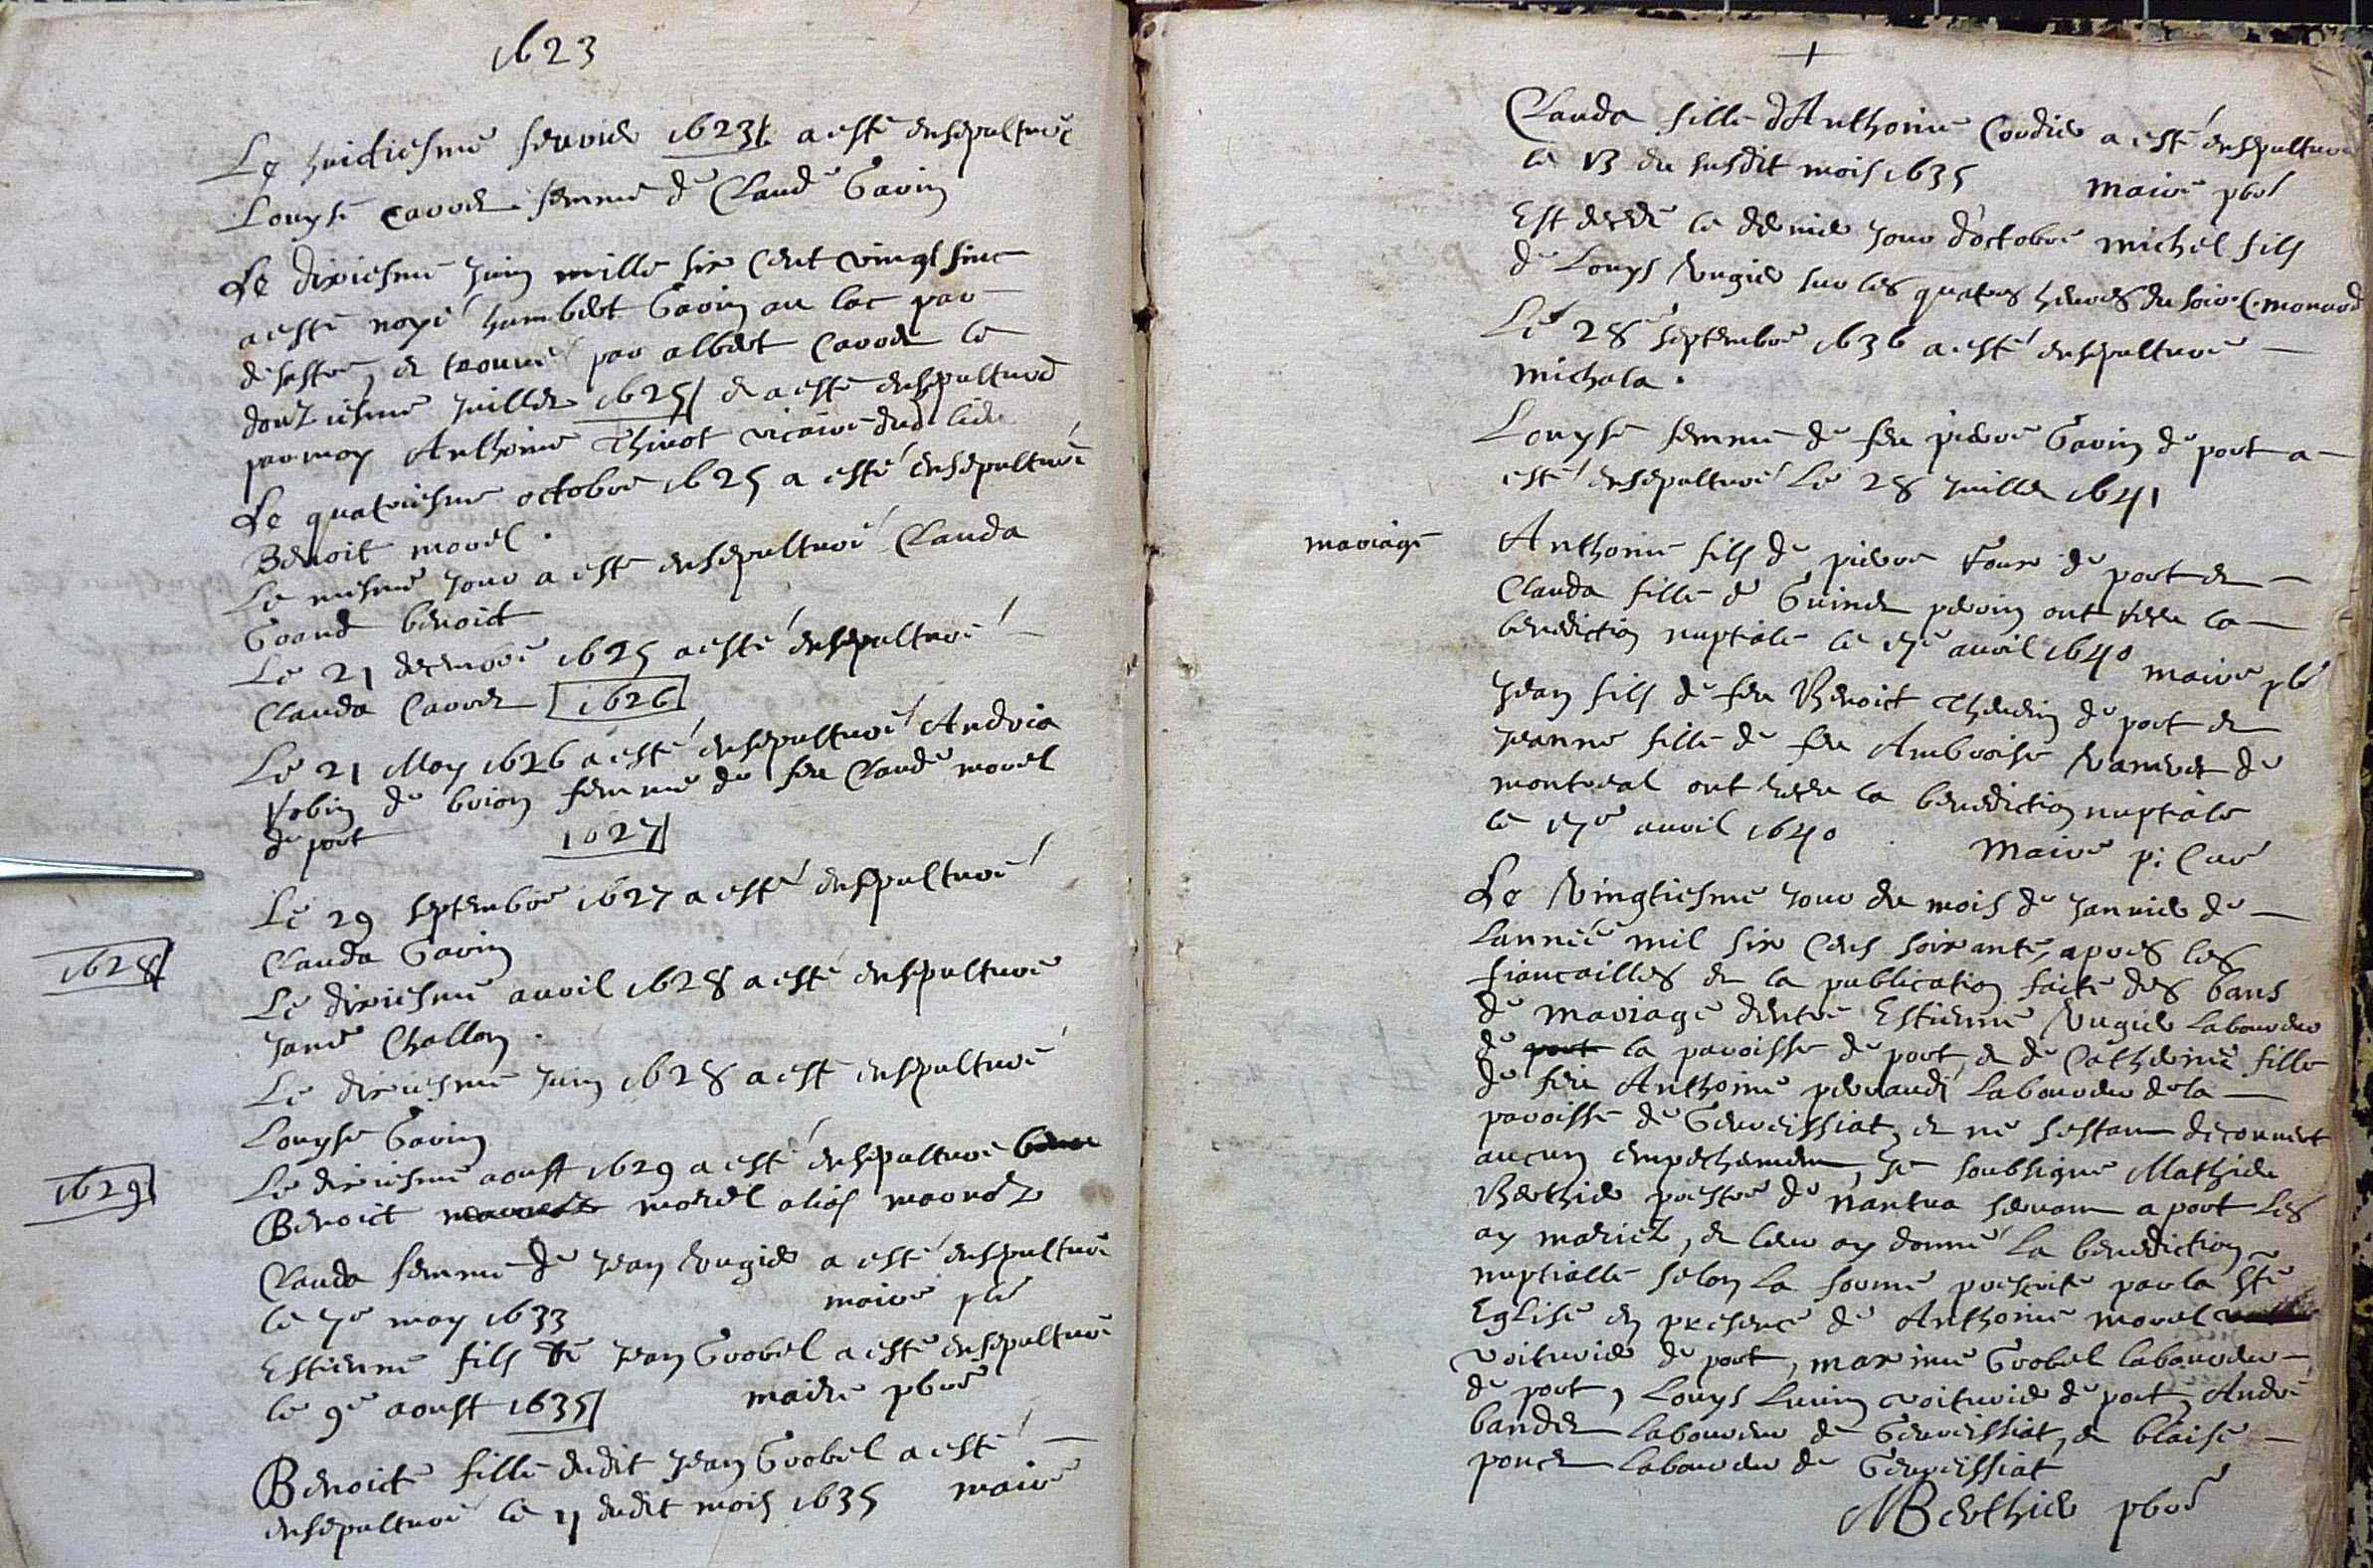 1623
Le huictiesme feuvrier 1623 a esté ensepulturée
Louyse Carrer femme de Claude Gavin
Le dixiesme juin mille six cent vingt sinc
a esté noyé humbert Gavin au lac par
desastre, et trouvé par albert Carrer le
douziesme juillet 1625 et a esté ensepulturé
par moy Anthoine Thivot vicaire dud lieu
Le quatriesme octobre 1625 a esté ensepulturé
Benoit morel.
Le mesme jour a esté ensepulturé Clauda
Grand benoict
Le 21 decembre 1625 a esté ensepulturé
Clauda Carrer 1626
Le 21 May 1626 a esté ensepulturé Andria
de brion femme de feu Claude morel
de port 1627
Le 29 septembre 1627 a esté ensepulturé
Clauda Gavin
1628
Le dixiesme avril 1628 a esté ensepulturé
Jane Challon.
Le dixiesme juin 1628 a esté ensepulturé
Louyse Gavin
1629
Le dixiesme aoust 1629 a esté ensepulturé
Benoict morel alias
Clauda femme de Jean Vugier a esté ensepulturé
le 7e may 1633 maire pbre
Estienne fils de Jean Grobel a esté ensepulturé
le 9e aoust 1635 maire pbre
Benoicte fille dudit Jean Grobel a esté
ensepulturé le 11 dudit mois 1635 maire
+
Clauda fille d'Anthoine Cordier a esté ensepulturé
le 13 du susdit mois 1635 maire pbre
Est decedé le dernier jour d'octobre michel fils
de Louys Vugier sur les quatres heures du soir C. monard
Le 28e septembre 1636 a esté ensepulturé
michala.
Louyse femme de feu pierre Gavin de port a
esté ensepulturé Le 28 juillet 1641
mariage
Anthoine fils de pierre de port et
Clauda fille de Guinet perrin ont receu la
benediction nuptiale le 17e avril 1640 maire pbre
Jean fils de feu Benoict Thevenin de port et
Jeanne fille de feu Ambroise de
montreal ont receu la benediction nuptiale
le 17e avril 1640 Maire p: Curé
Le Vingtiesme jour du mois de Janvier de
Lannée mil six Cens soixante, apres les
fiancailles et la publication faite des bans
de mariage dentre Estienne Vugier laboureur
de port la paroisse de port, et de Catherine fille
de feu Anthoine pernaudi laboureur de la
paroisse de Geureissiat, et ne sestant decouvert
aucun empechement, Je soubsigne Mathieu
Berthier prestre de nantua servant a port Les
ay mariez, et leur ay donné la benediction
nuptialle selon la forme prescrite par la ste
Eglise en presence de Anthoine morel
voiturier de port, maxime Grobel laboureur
de port, Louys Luvin voiturier de port, André
bandet laboureur de Geureissiat, et blaise
poncet laboureur de Geureissiat
MBerthier pbre